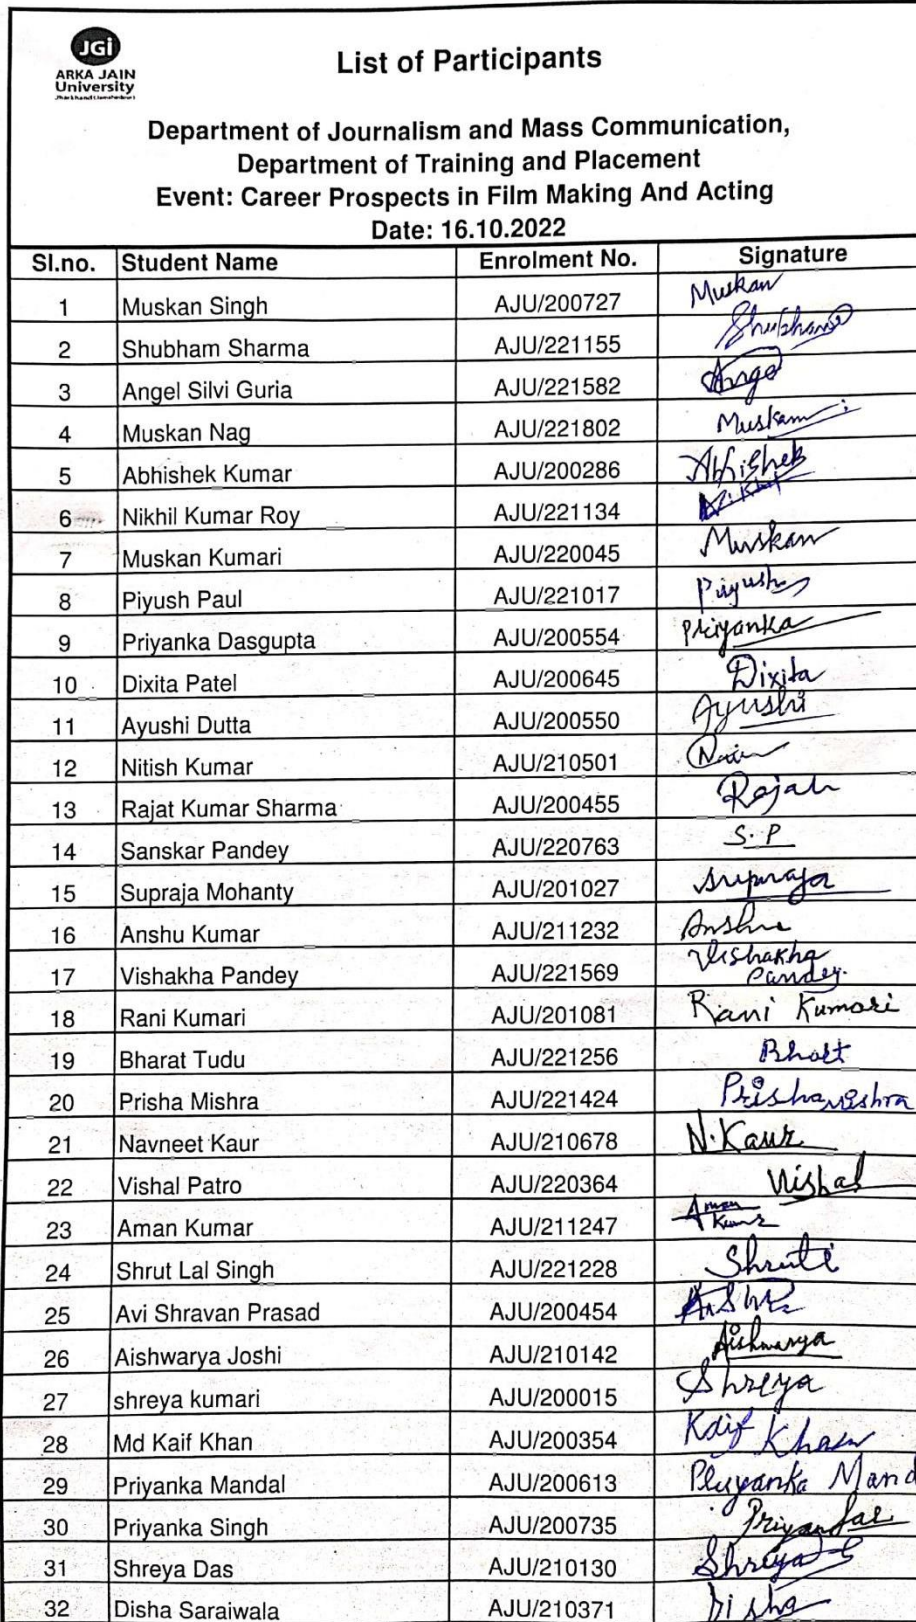 JGi
ARKA JAIN
University
Jharkhand (Jamshedpur)
List of Participants
Department of Journalism and Mass Communication,
Department of Training and Placement
Event: Career Prospects in Film Making And Acting
Date: 16.10.2022
Sl.no. Student Name Enrolment No. Signature
1 Muskan Singh AJU/200727 Muskan
2 Shubham Sharma AJU/221155 Shubham
3 Angel Silvi Guria AJU/221582 Angel
4 Muskan Nag AJU/221802 Muskan
5 Abhishek Kumar AJU/200286 Abhishek
6 Nikhil Kumar Roy AJU/221134
7 Muskan Kumari AJU/220045 Muskan
8 Piyush Paul AJU/221017 Piyush
9 Priyanka Dasgupta AJU/200554 Priyanka
10 Dixita Patel AJU/200645 Dixita
11 Ayushi Dutta AJU/200550 Ayushi
12 Nitish Kumar AJU/210501
13 Rajat Kumar Sharma AJU/200455 Rajat
14 Sanskar Pandey AJU/220763 S.P
15 Supraja Mohanty AJU/201027 Supraja
16 Anshu Kumar AJU/211232 Anshu
17 Vishakha Pandey AJU/221569 Vishakha Pandey.
18 Rani Kumari AJU/201081 Rani Kumari
19 Bharat Tudu AJU/221256 Bhart
20 Prisha Mishra AJU/221424 Prisha Mishra
21 Navneet Kaur AJU/210678 N.Kaur
22 Vishal Patro AJU/220364 Vishal
23 Aman Kumar AJU/211247 Aman Kumar
24 Shrut Lal Singh AJU/221228 Shruti
25 Avi Shravan Prasad AJU/200454
26 Aishwarya Joshi AJU/210142 Aishwarya
27 shreya kumari AJU/200015 Shreya
28 Md Kaif Khan AJU/200354 Kaif Khan
29 Priyanka Mandal AJU/200613 Priyanka Mand
30 Priyanka Singh AJU/200735
31 Shreya Das AJU/210130 Shreya
32 Disha Saraiwala AJU/210371 Disha